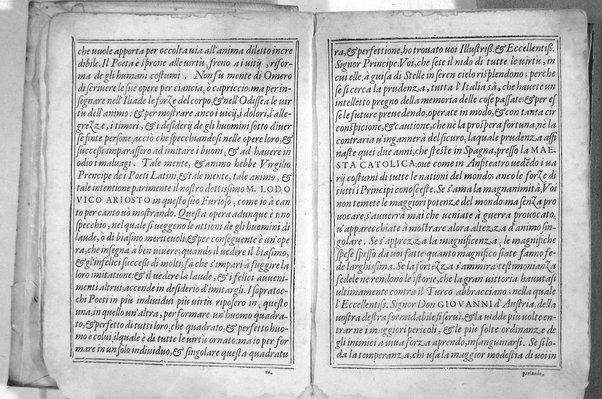 che vuole apporta per occolta uia all'anima diletto incre
dibile. Il Poeta è sprone alle uirtù, freno ai uitij, rifor-
ma de gli humani costumi. Non fu mente di Omero
di scriuere le sue opere per ciancia, ò capriccio: ma per in-
segnare nell'Iliade le forze del corpo, & nell'Odissea le uir
tù dell'animo: & per mostrare anco i uicij, i dolori, l'alle-
grezze, i timori, & i desiderij de gli huomini sotto diuer
se finte persone acciò che specchiandosi nelle opere loro, &
successi imparassero ad imitare i buoni, & ad hauere in
odio i maluagi. Tale mente, & animo hebbe Virgilio
Prencipe dei Poeti Latini, & tale mente, tale animo, &
tale intentione parimente il nostro dottissimo M. LODO
VICO ARIOSTO in questo suo Furioso; come io à can
to per canto uò mostrando. Questa opera adunque è uno
specchio, nel qual si ueggono le attioni de gli huomini di
laude, ò di biasimo meriteuoli; & per conseguente è un'ope
ra, che insegna a ben uiuere; quando il uedere il biasimo,
& gl'infelici successi di molti, fà che s'impari a fuggire la
loro imitatione: & il uedere la laude, & i felici auueni-
menti altrui accende in desiderio d'imitargli. I sopratoc-
chi Poeti in più indiuidui più uirtù riposero in, questo
una, in quello un'altra, per formare un'huomo quadra-
to, & perfetto di tutti loro, che quadrato & perfetto huo-
mo e colui, ilquale è di tutte le uirtù ornato: ma io per for
mare in un solo indiuiduo, & singolare questa quadratu
ra,
ra, & perfettione, ho trouato uoi Illustriss. & Eccellentiss.
Signor Principe. Voi, che sete il nido di tutte le uirtù, in
cui elle, à guisa di Stelle in seren cielo risplendono; perche
se si cerca la prudenza, tutta l'Italia sà, che hauete un
intelletto pregno della memoria delle cose passate: & per es
se le future preuedendo, operate in modo, & con tanta cir
conspicione, & cautione, che nè la prospera fortuna, nè la
contraria u'ingannerà del sicuro: ilquale uso apprende-
naste quei due anni, che steste in Spagna, presso la MAE-
STA CATOLICA: oue come in Anfiteatro uedēdo i ua
rij costumi di tutte le nations del mondo: anco le forze di
tutti i Principi conosceste. Se s'ama la magnanimità, Voi
non temete le maggiori potenze del mondo: ma senza pro
uocare, s'auuerrà mai che ueniate a guerra prouocato,
u'apparecchiate a mostrare alora altezza d'animo sin-
golare. Se s'apprezza la magnificenza, le magnifiche
spese spesso da uoi fatte quanto magnifico siate fanno fe-
de larghissima. Se la fortezza s'ammira: testimonianza
fedele ne rendono le istorie, che la gran uittoria hauutasi
ultimamente contra il Turco abbracciano, nella quale
l'Eccellentiss. Signor Don GIOVANNI d'Austria, della
uostra destra formidabile si seruì, & la uidde più uolte en-
trarne i maggiori pericoli, & le più folte ordinanze de
gli inimici a uiua forza aprendo, insanguinarsi. Se si lo-
da la temperanza, chi usa la maggior modestia di uoi in
parlando,